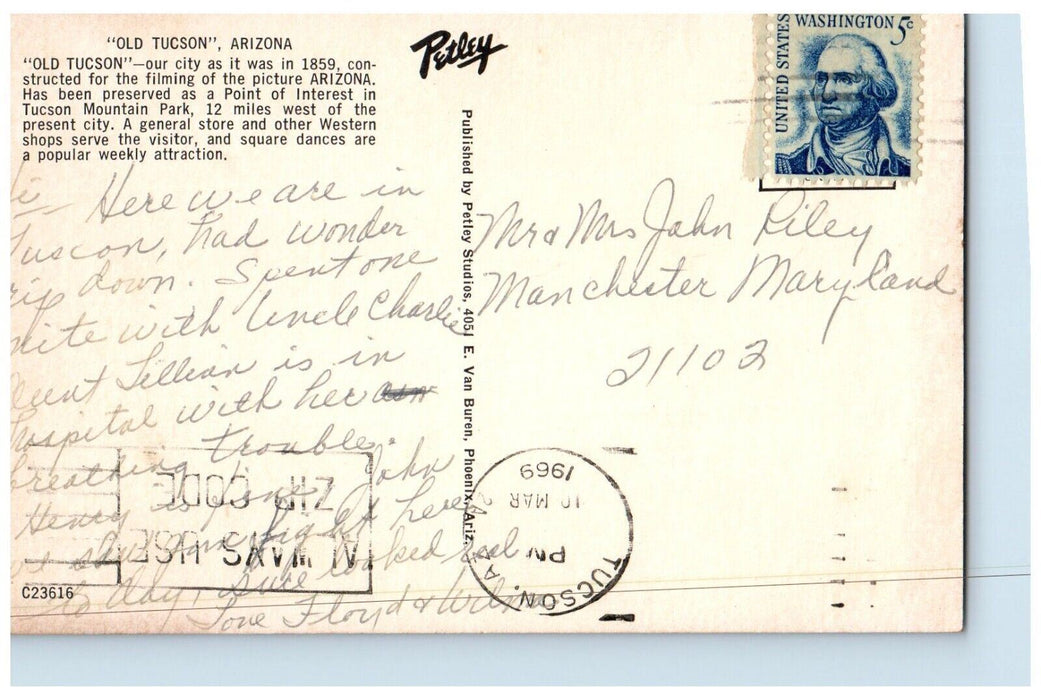 "OLD TUCSON", ARIZONA
"OLD TUCSON"—our city as it was in 1859, con-
structed for the filming of the picture ARIZONA.
Has been preserved as a Point of Interest in
Tucson Mountain Park, 12 miles west of the
present city. A general store and other Western
shops serve the visitor, and square dances are
a popular weekly attraction.
Here we are in
Tuscon, had wonder
down. Spent one
nite with Uncle Charlie
Aunt Lillian is in
hospital with her
breathing trouble.
Henry is fine, John
here
looked real
day,
Love Floyd & Wilma
C23616
Petley
Published by Petley Studios, 4051 E. Van Buren, Phoenix, Ariz.
UNITED STATES
WASHINGTON 5c
Mr & Mrs John Riley
Manchester Maryland
21102
ALWAYS USE
ZIP CODE
TUCSON, AZ
PM
10 MAR
1969